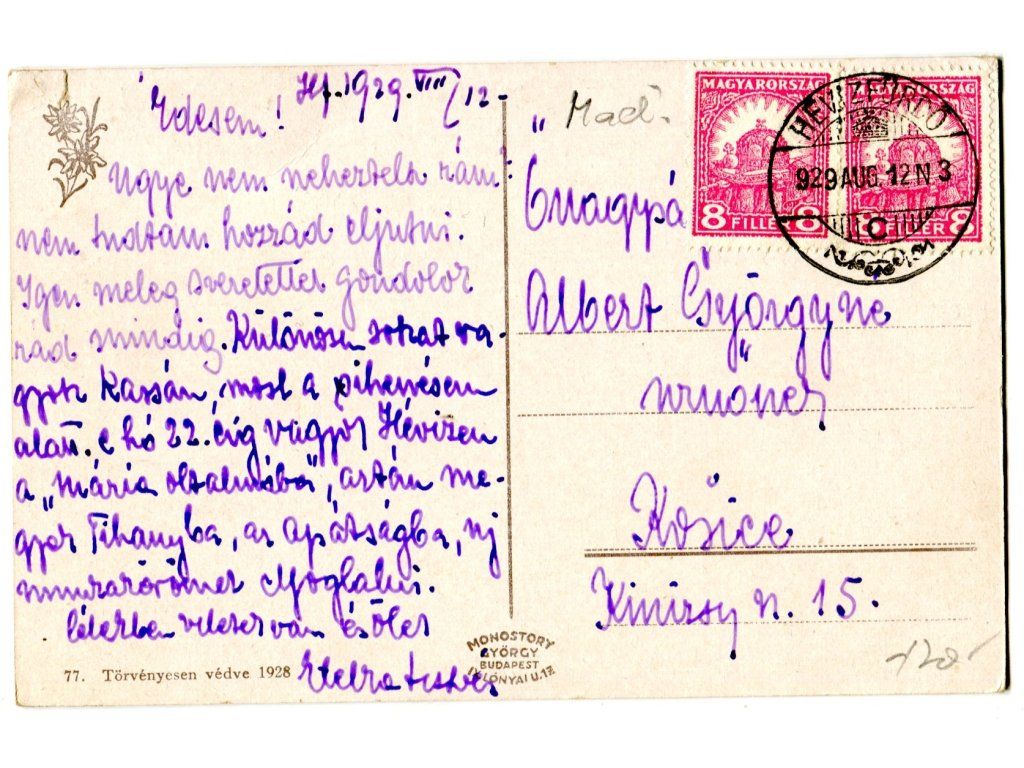 Hf. 1929. VIII/12-
Édesem!
Ugye nem neheztelsz rám?
nem tudtam hozzád eljutni.
Igen meleg szeretettel gondolok
rád mindig. Különösen sokat va-
gyok Kassán, most a pihenésem
alatt. e hó 22.-éig vagyok Hévizen
a „Mária oltalmába", aztán me-
gyek Tihanyba, az apátságba, uj
munkakörömet elfoglalni.
lélekben veletek van és ölel
Etelka
77. Törvényesen védve 1928
MONOSTORY
GYÖRGY
BUDAPEST
MAGYARORSZÁG
8 FILLÉR 8
MAGYARORSZÁG
8 FILLÉR 8
HÉVIZFÜRDŐ
929 AUG. 12 N 3
C
"
Nagyság
Albert Györgyné
"
urnőnek
Košice
Kinizsy u. 15.
120